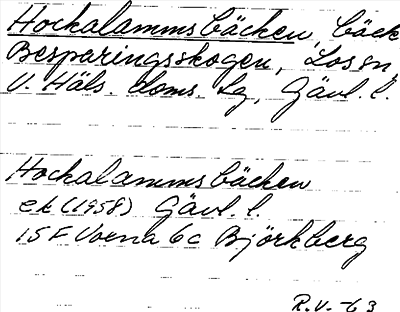 Hockalammsbäcken, bäck
Besparingsskogen, Lossn,
V. Häls. doms. lg, Gävl. l.
Hockalammsbäcken
ek (1958) Gävl. l.
15 F Voxna 6c Björkberg
R.V. -63